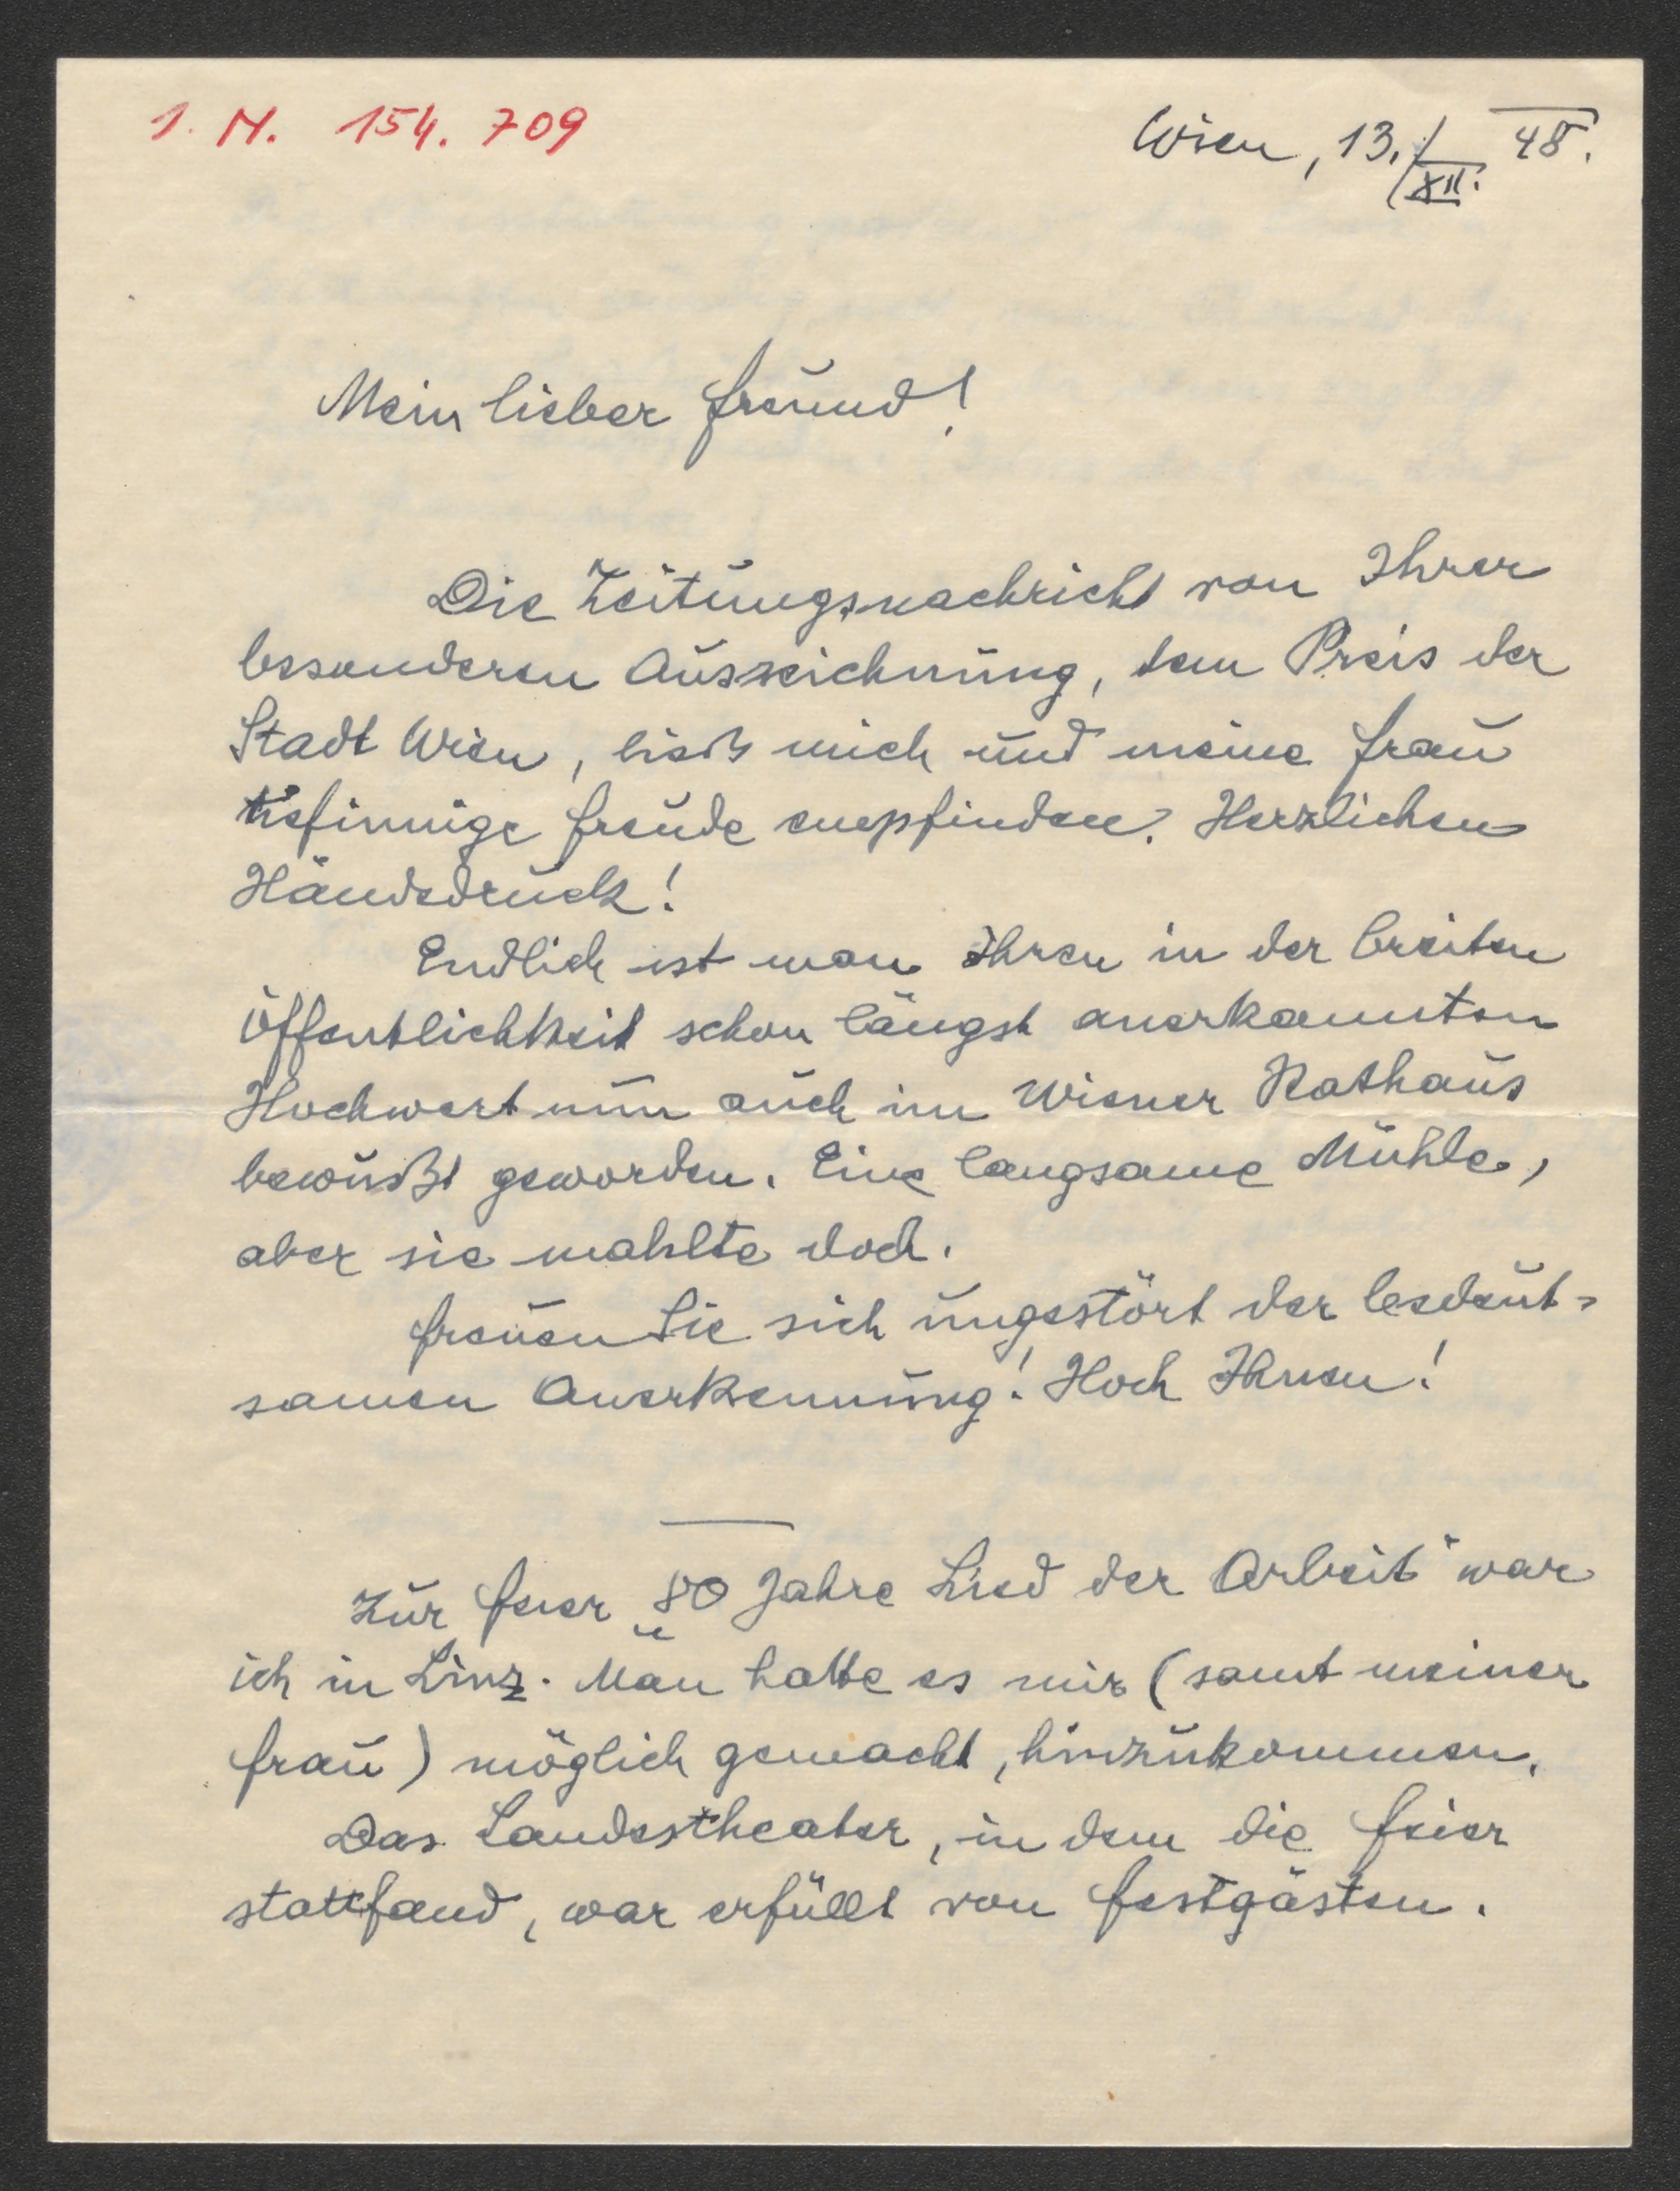 I. N. 154.709
Wien, 13./XII. 48.
Mein lieber Freund!
Die Zeitungsnachricht von Ihrer
besonderen Auszeichnung, dem Preis der
Stadt Wien, ließ mich und meine Frau
tiefinnige Freude empfinden. Herzlichen
Händedruck!
Endlich ist man Ihren in der breiten
Öffentlichkeit schon längst anerkannten
Hochwert nun auch im Wiener Rathaus
bewußt geworden. Eine langsame Mühle,
aber sie mahlte doch.
Freuen Sie sich ungestört der bedeut-
samen Anerkennung! Hoch Ihnen!
Zur Feier „80 Jahre Lied der Arbeit" war
ich in Linz. Man hatte es mir (samt meiner
Frau) möglich gemacht, hinzukommen.
Das Landestheater, in dem die Feier
stattfand, war erfüllt von Festgästen.